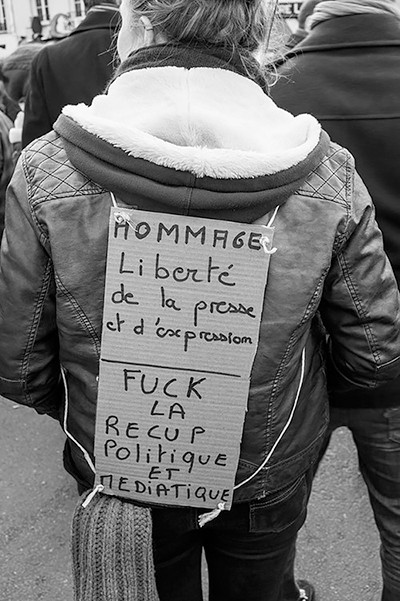 HOMMAGE
Liberté
de la presse
et d'expression
FUCK
LA
RECUP
Politique
ET
MEDIATIQUE